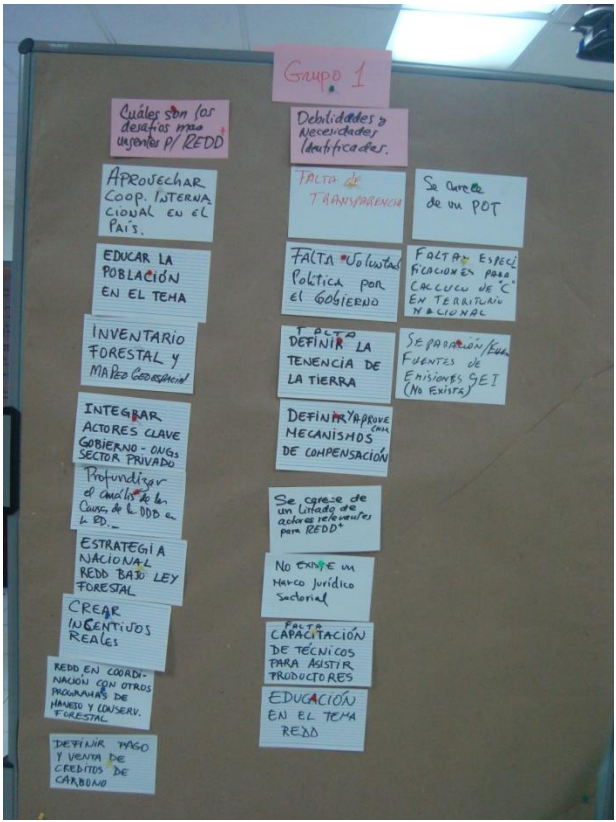 Grupo 1
Cuáles son los
desafios mas
urgentes P/ REDD+
APROVECHAR
COOP. INTERNA-
CIONAL EN EL
PAÍS.
EDUCAR LA
POBLACIÓN
EN EL TEMA
INVENTARIO
FORESTAL Y
MAPEO GEOESPACIAL
INTEGRAR
ACTORES CLAVE
GOBIERNO - ONGs
SECTOR PRIVADO
Profundizar
el análisis de las
Causas de la DDB en
la RD.
ESTRATEGIA
NACIONAL
REDD BAJO LEY
FORESTAL
CREAR
INCENTIVOS
REALES
REDD EN COORDI-
NACIÓN CON OTROS
PROGRAMAS DE
MANEJO Y CONSERV.
FORESTAL
DEFINIR PAGO
Y VENTA DE
CREDITOS DE
CARBONO
Debilidades y
Necesidades
Identificadas.
FALTA DE
TRANSPARENCIA
FALTA Voluntad
Política por
el GOBIERNO
FALTA
DEFINIR LA
TENENCIA DE
LA TIERRA
DEFINIR Y APROVE
CHAR
MECANISMOS
DE COMPENSACIÓN
Se carece de
un Listado de
actores relevantes
para REDD+
NO EXISTE un
Marco Jurídico
Sectorial
FALTA
CAPACITACIÓN
DE TÉCNICOS
PARA ASISTIR
PRODUCTORES
EDUCACIÓN
EN EL TEMA
REDD
Se carece
de un POT
FALTAN ESPECI
FICACIONES PARA
CALCULO DE "C"
EN TERRITORIO
NACIONAL
SEPARACIÓN/
FUENTES DE
EMISIONES GEI
(NO EXISTE)